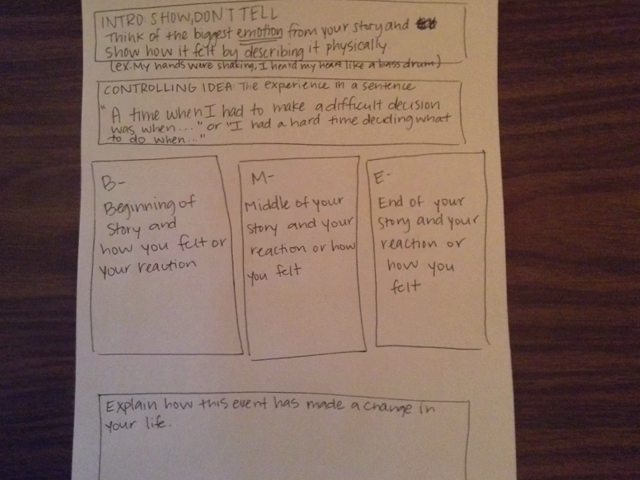 INTRO: SHOW, DON'T TELL
Think of the biggest emotion from your story and
show how it felt by describing it physically.
(ex. My hands were shaking, I heard my heart like a bass drum)
CONTROLLING IDEA: The experience in a sentence
"A time when I had to make a difficult decision
was when..." or "I had a hard time deciding what
to do when..."
B-
Beginning of
story and
how you felt or
your reaction
M-
Middle of your
story and your
reaction or how
you felt
E-
End of your
story and your
reaction or
how you
felt
Explain how this event has made a change in
your life.